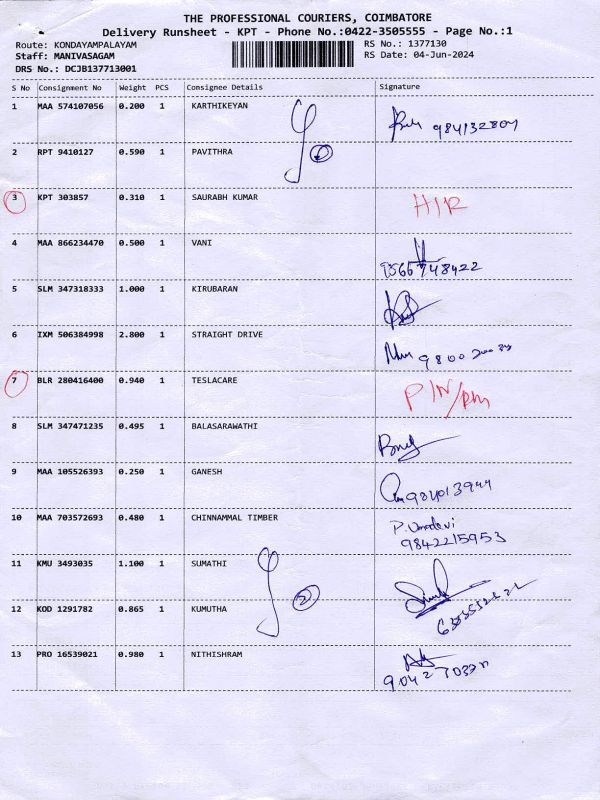 THE PROFESSIONAL COURIERS, COIMBATORE
Delivery Runsheet - KPT - Phone No.:0422-3505555 - Page No.:1
Route: KONDAYAMPALAYAM RS No.: 1377130
Staff: MANIVASAGAM RS Date: 04-Jun-2024
DRS No.: DCJB137713001
S No Consignment No Weight PCS Consignee Details Signature
1 MAA 574107056 0.200 1 KARTHIKEYAN
2 RPT 9410127 0.590 1 PAVITHRA
3 KPT 303857 0.310 1 SAURABH KUMAR H/R
4 MAA 866234470 0.500 1 VANI
5 SLM 347318333 1.000 1 KIRUBARAN
6 IXM 506384998 2.800 1 STRAIGHT DRIVE
7 BLR 280416400 0.940 1 TESLACARE
8 SLM 347471235 0.495 1 BALASARAWATHI
9 MAA 105526393 0.250 1 GANESH
10 MAA 703572693 0.480 1 CHINNAMMAL TIMBER P. Umadevi
9842215953
11 KMU 3493035 1.100 1 SUMATHI
12 KOD 1291782 0.865 1 KUMUTHA
13 PRO 16539021 0.980 1 NITHISHRAM